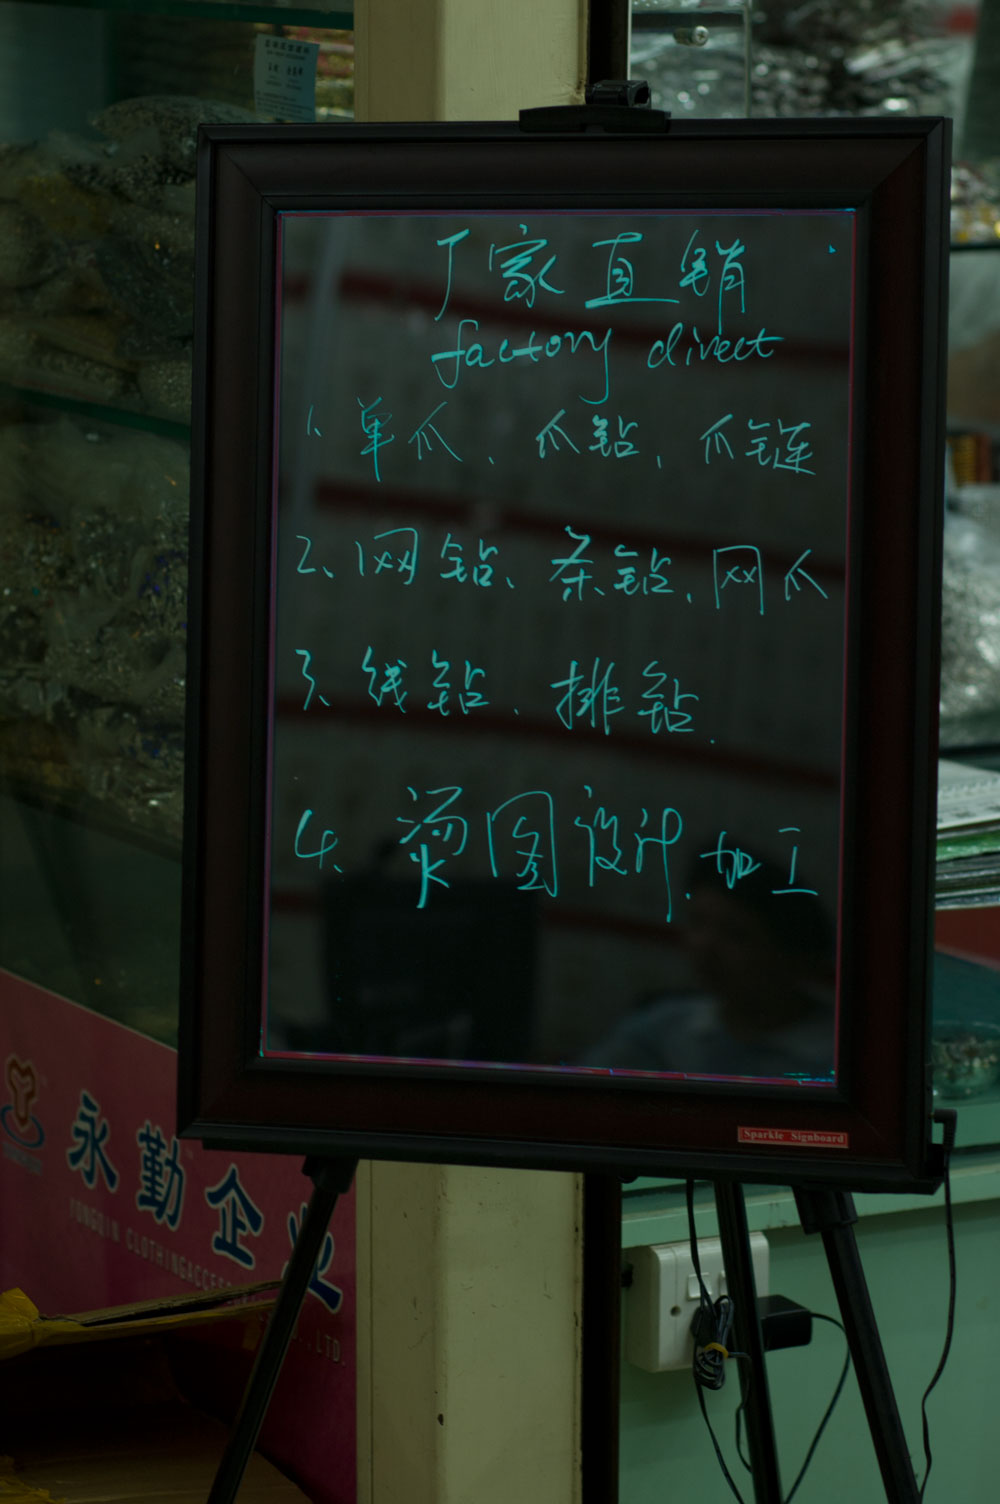 厂家直销
factory direct
1、单爪、爪钻、爪链
2、网钻、条钻、网爪
3、线钻、排钻.
4、烫图设计、加工
Sparkle Signboard
永勤企业
YONGQIN CLOTHINGACCESSO
CO.,LTD.